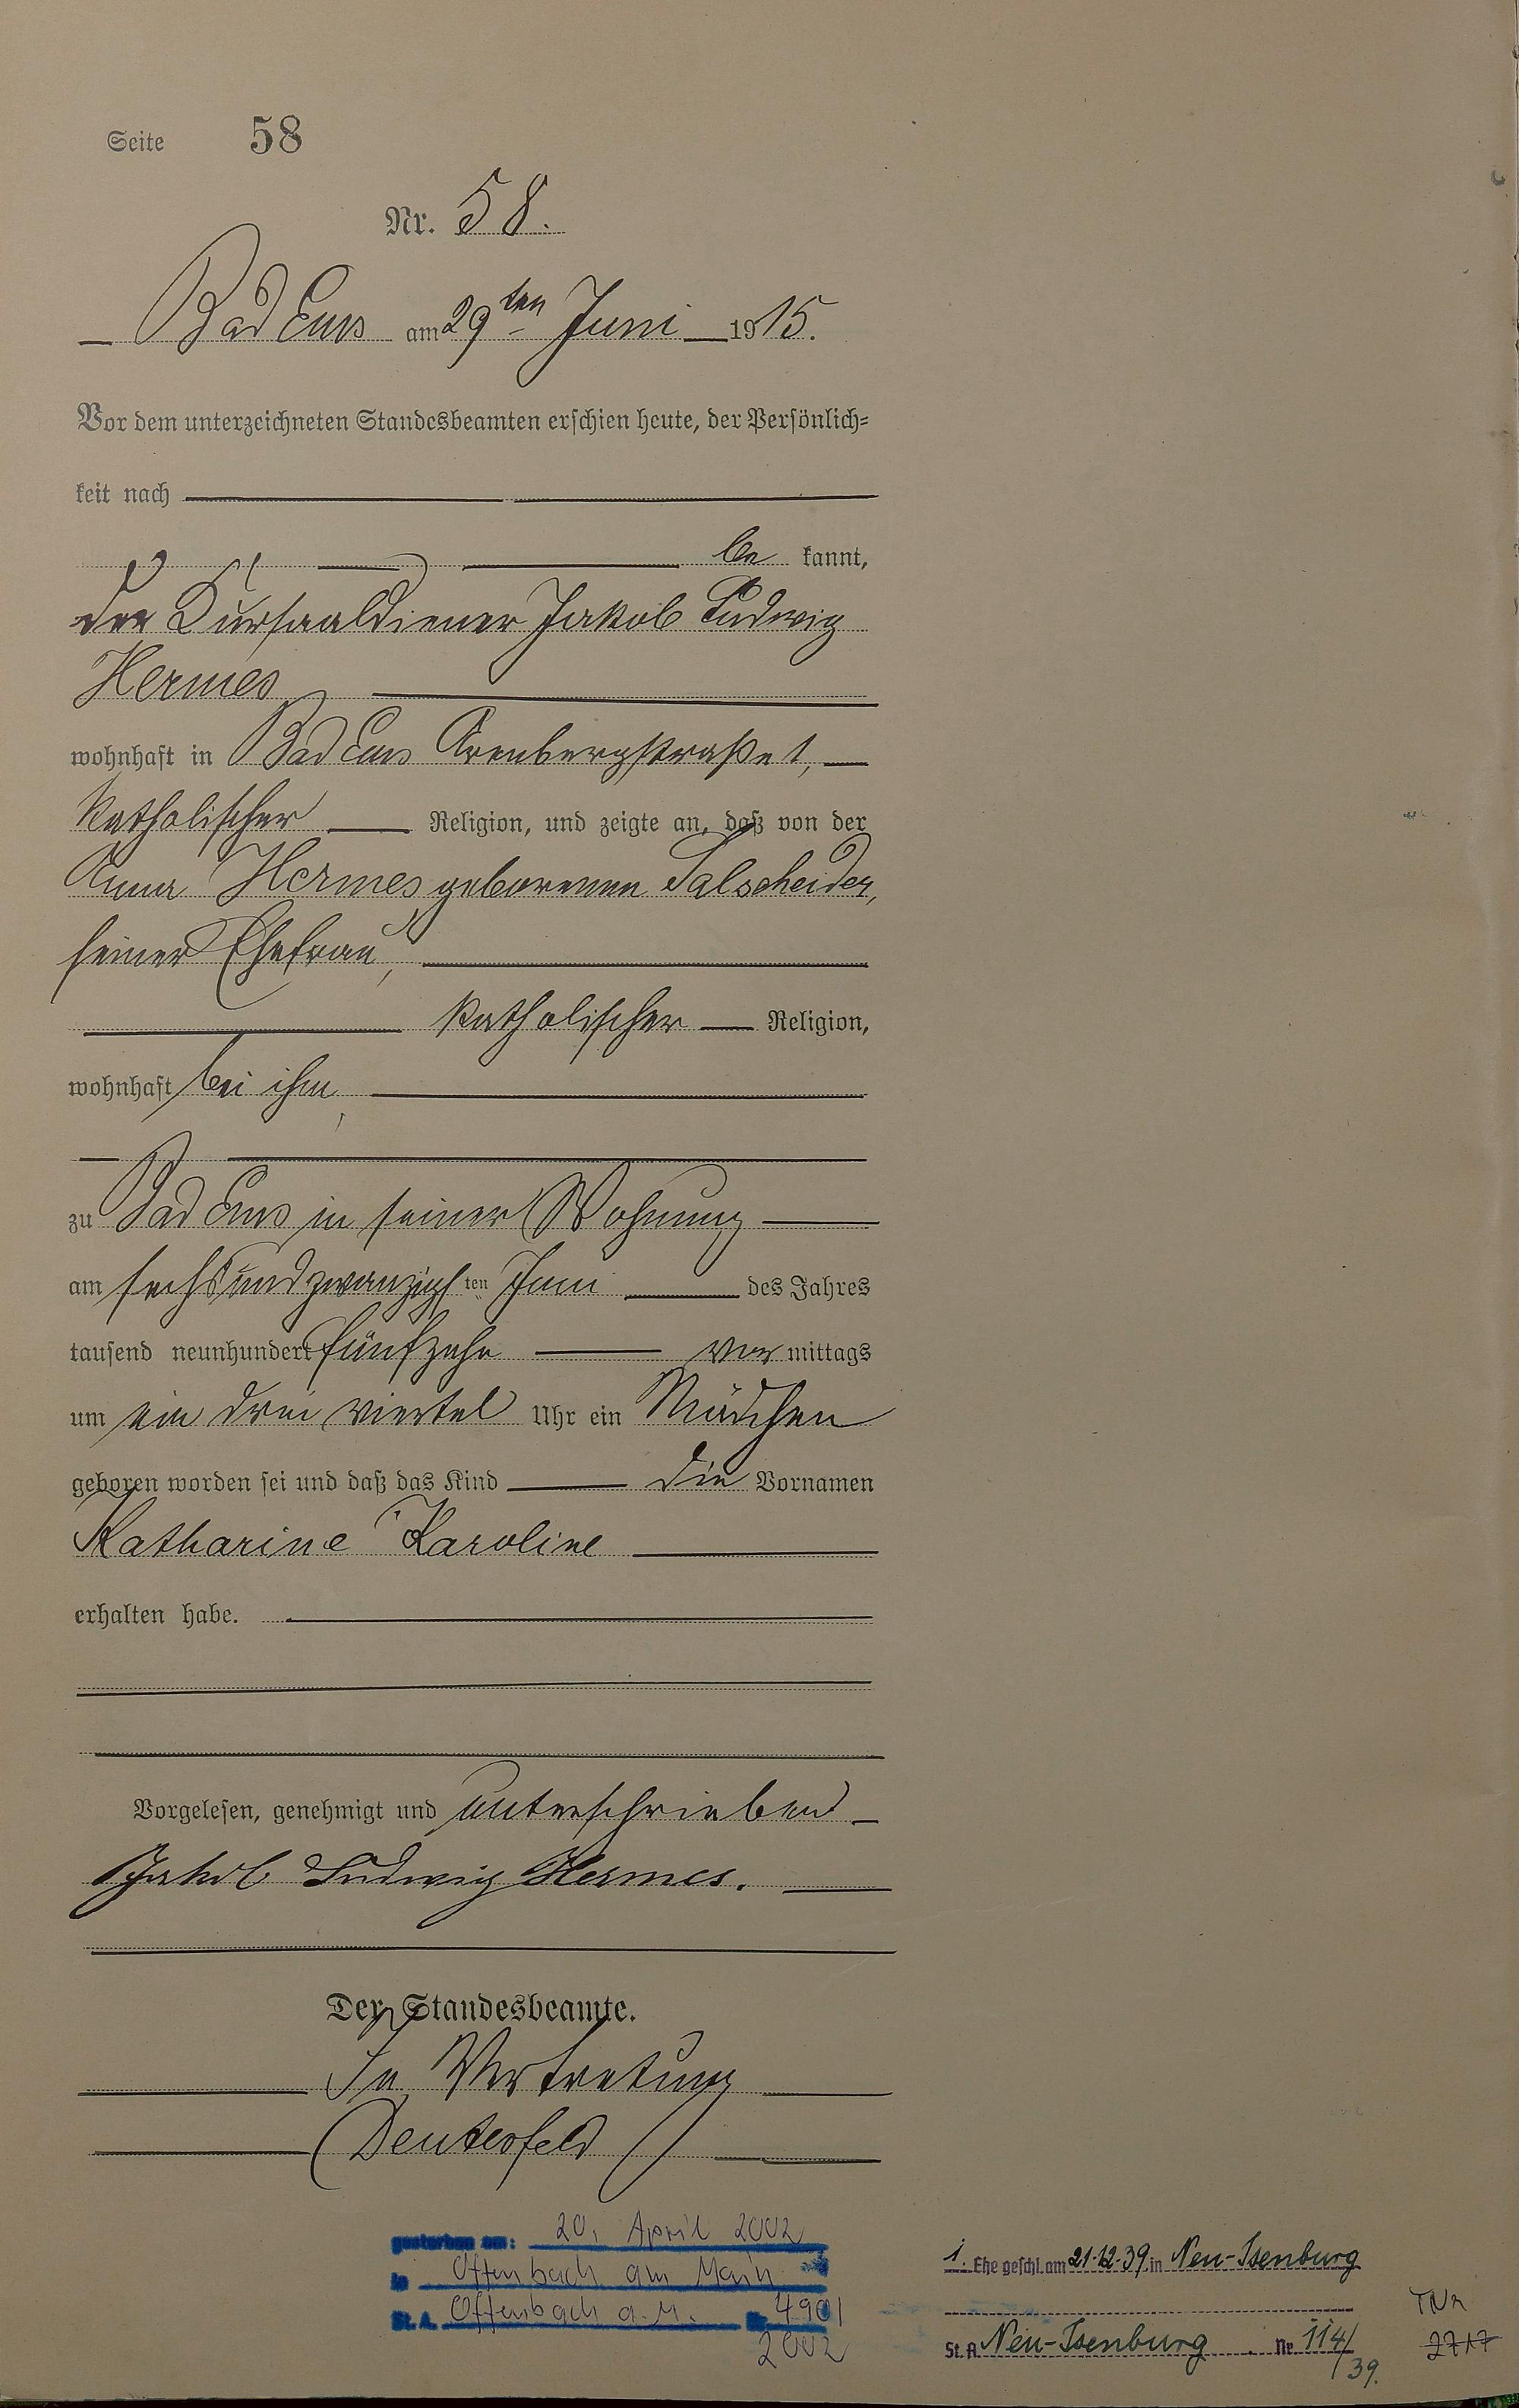 Seite 58
Nr. 58.
Bad Ems am 29ten Juni 1915.
Vor dem unterzeichneten Standesbeamten erschien heute, der Persönlich=
keit nach
be kannt,
der Kursaaldiener Jakob Ludwig
Hermes
wohnhaft in Bad Ems Arenbergstraße 1,
katholischer Religion, und zeigte an, daß von der
Anna Hermes geborenen Salscheider,
seiner Ehefrau,
katholischer Religion,
wohnhaft bei ihm,
zu Bad Ems in seiner Wohnung
am sechsundzwanzigsten Juni des Jahres
tausend neunhundert fünfzehn vormittags
um ein drei viertel Uhr ein Mädchen
geboren worden sei und daß das Kind die Vornamen
Katharine Karoline
erhalten habe.
Vorgelesen, genehmigt und unterschrieben
Jakob Ludwig Hermes.
Der Standesbeamte.
In Vertretung
Deuterfeld
gestorben am: 20. April 2002
in Offenbach am Main
St. A. Offenbach a. M. Nr. 490/
2002
1. Ehe geschl. am 21.12.39. in Neu-Isenburg
St. A. Neu-Isenburg. Nr. 114/
39.
2717